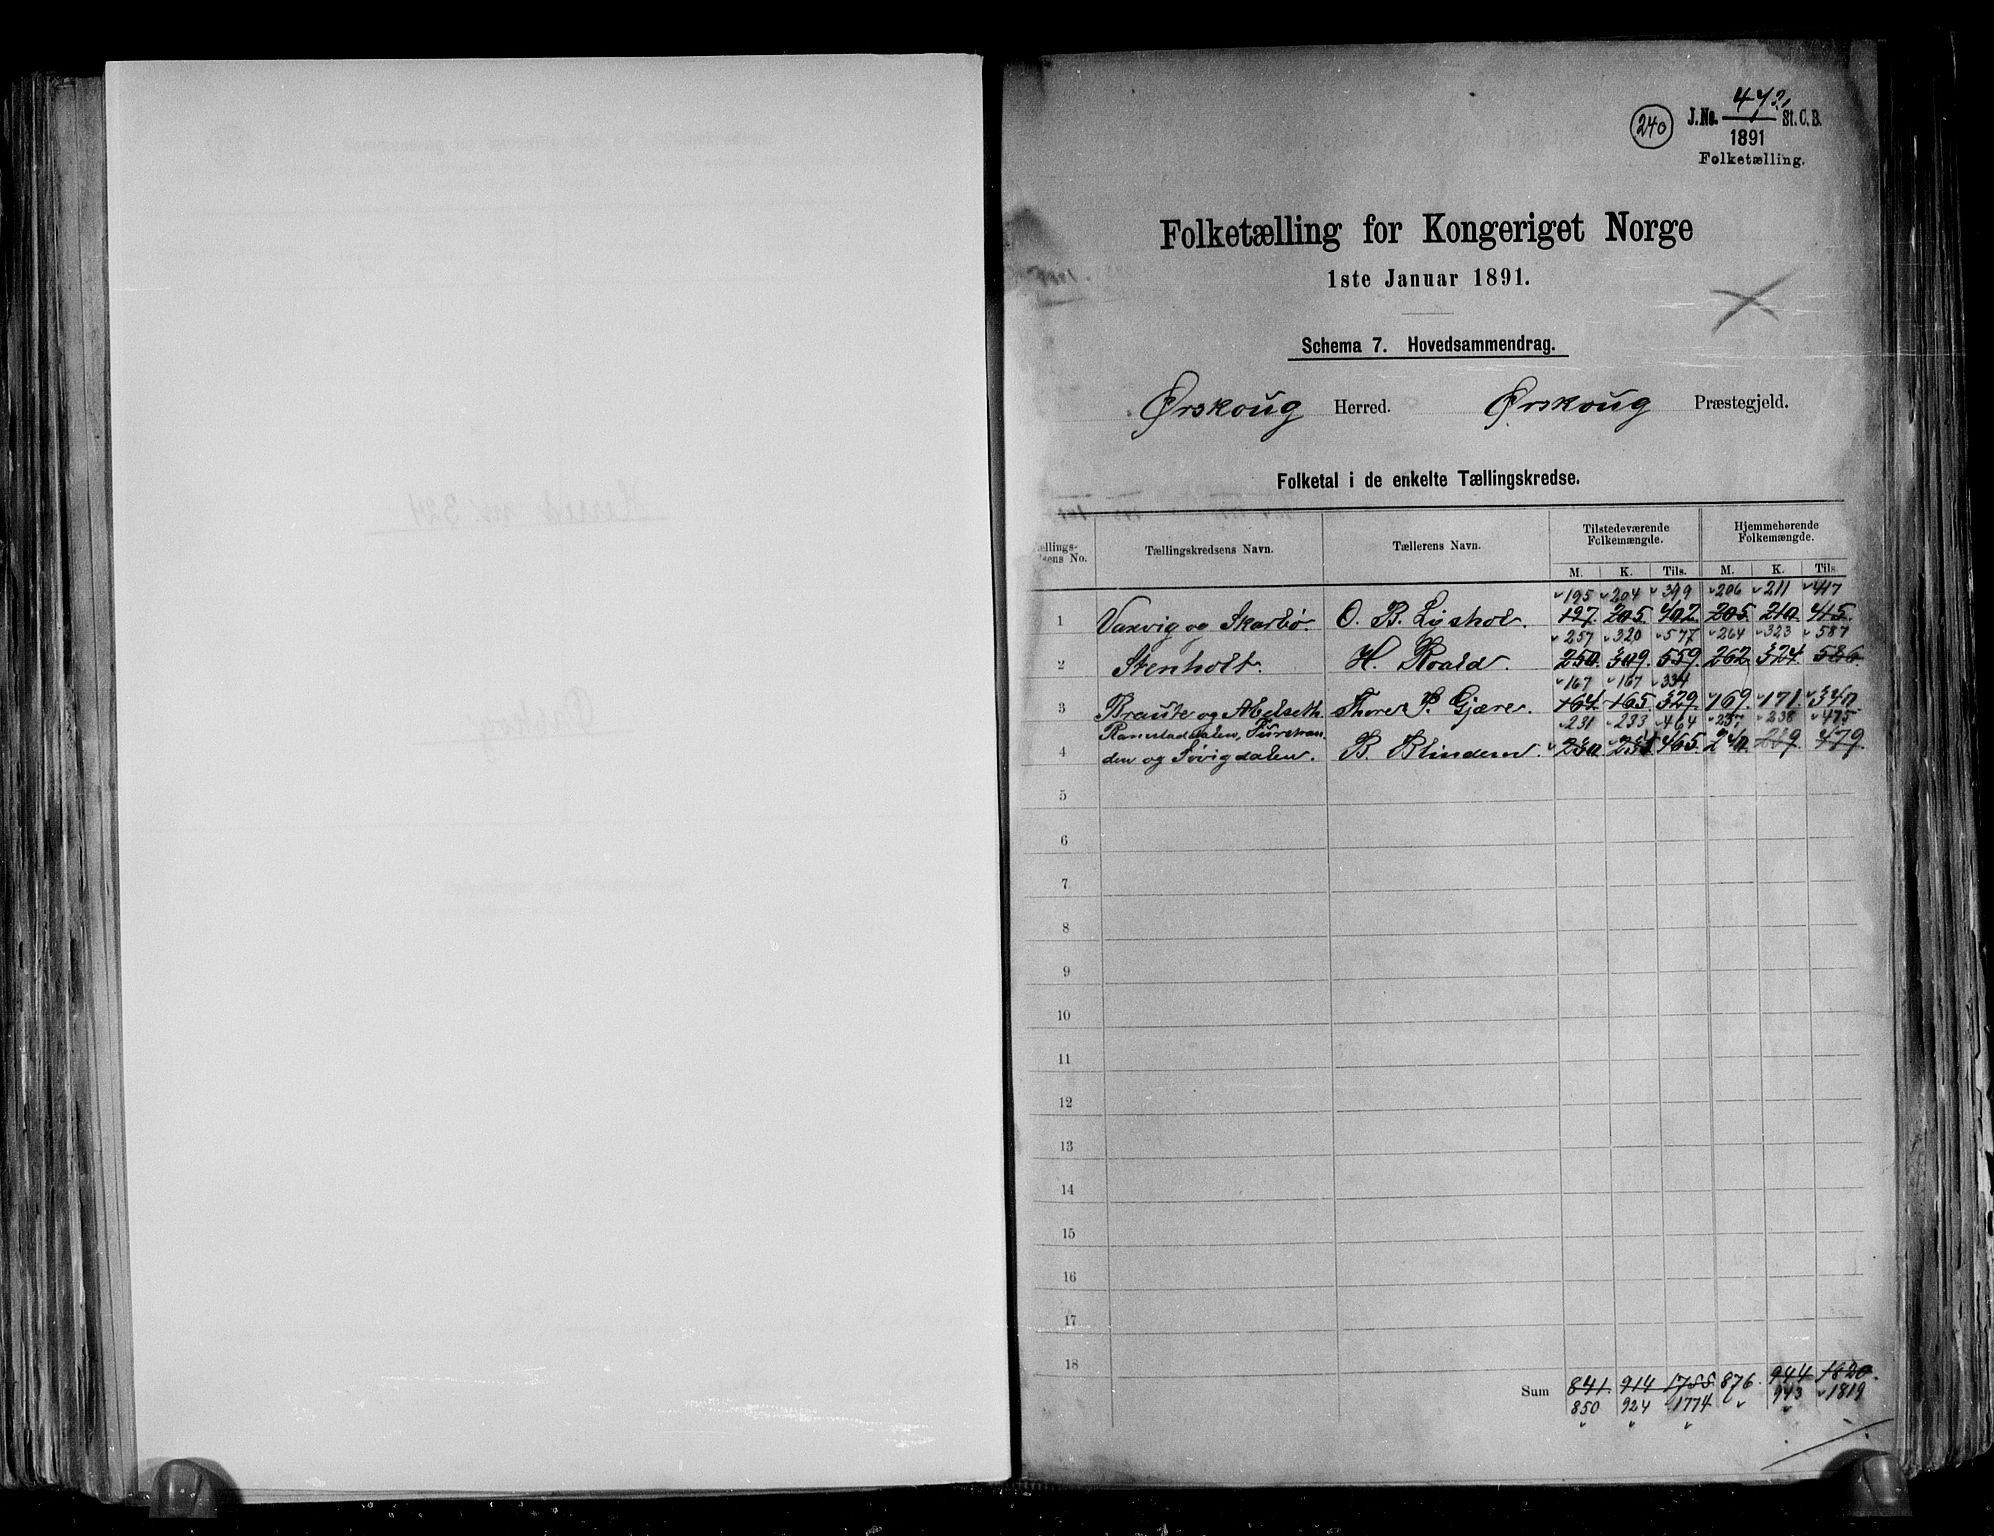 240 J.No. 472 St. C. B.
1891
Folketælling.
Folketælling for Kongeriget Norge
1ste Januar 1891.
Schema 7. Hovedsammendrag.
Ørskoug Herred. Ørskoug Præstegjeld.
Folketal i de enkelte Tællingskredse.
Tællingskredsens Navn. Tællerens Navn. Tilstedeværende Folkemængde. Hjemmehørende Folkemængde.
M. K. Tils. M. K. Tils.
195 204 399 206 211 417
1 Vaxvig og Skarbø. O. B. Lyshol. 197. 205. 402. 205. 210. 415.
257 320 577 264 323 587
2 Stenholt. H. Roald. 250. 309. 559. 262. 324. 586
167 167 334
3 Braute og Abelseth. Thore P. Gjære. 164. 165. 329. 169. 171. 340.
231 233 464 237 238 475
4 Ramstaddalen,
den og Søvigdalen. B. Blindem. 230. 465. 240. 239. 479.
5
6
7
8
9
10
11
12
13
14
15
16
17
18
Sum 841. 914 1755 876. 944 1820.
850 924 1774 943 1819
Herred nr. 324
Ørskog